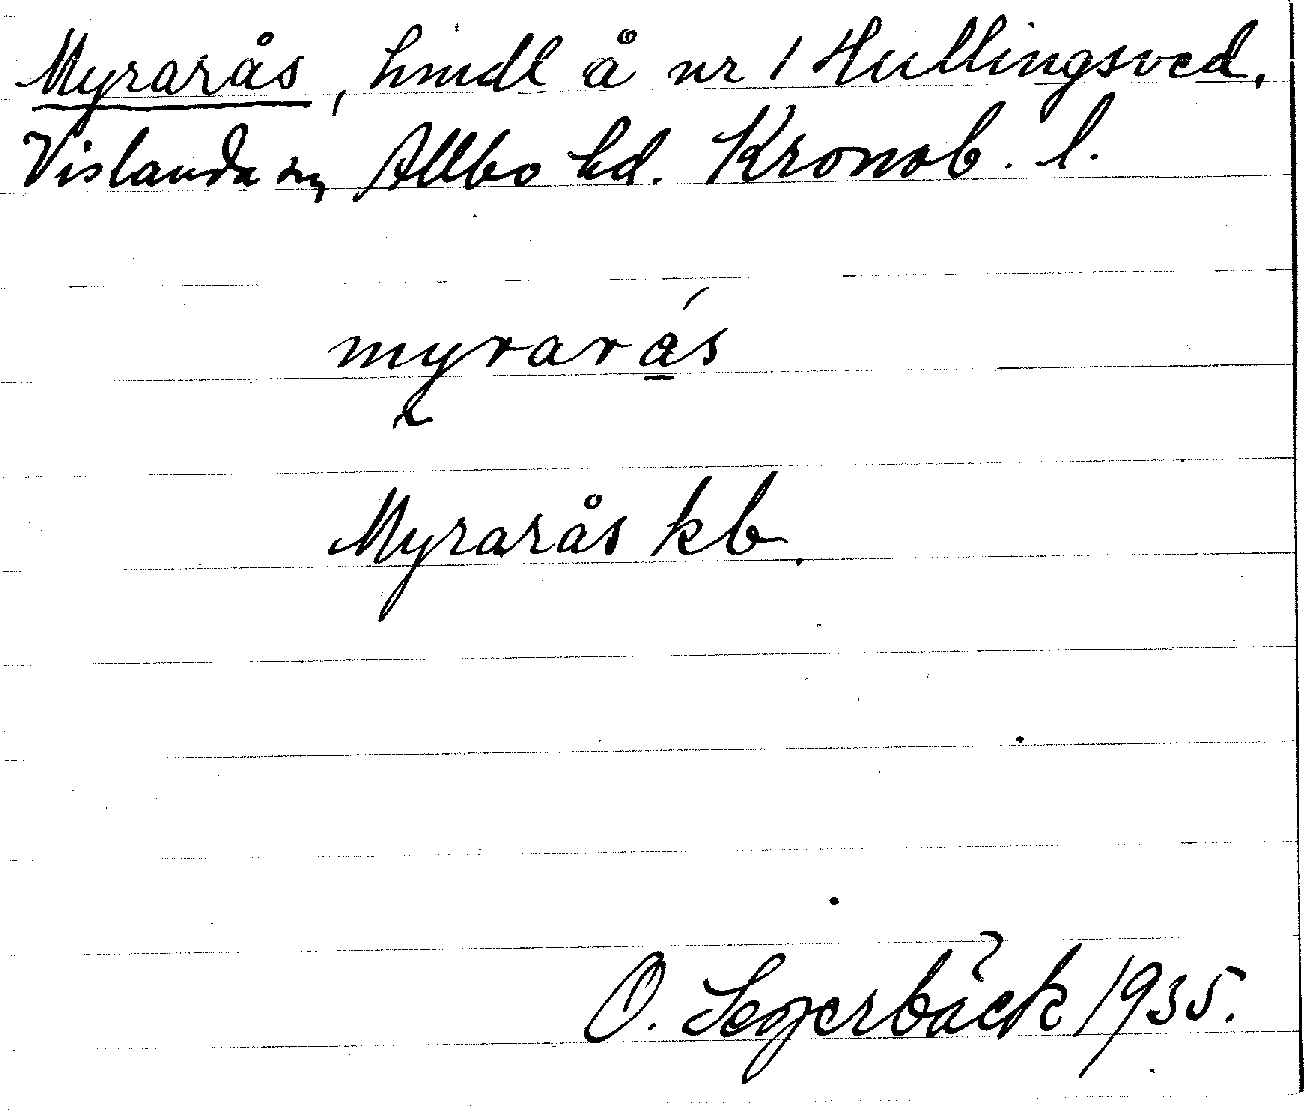 Myrarås, hmdl å nr 1 Hullingsved,
Vislanda sn, Allbo hd. Kronob. l.
myrarás
Myrarås kb.
O. Segerbäck 1935.